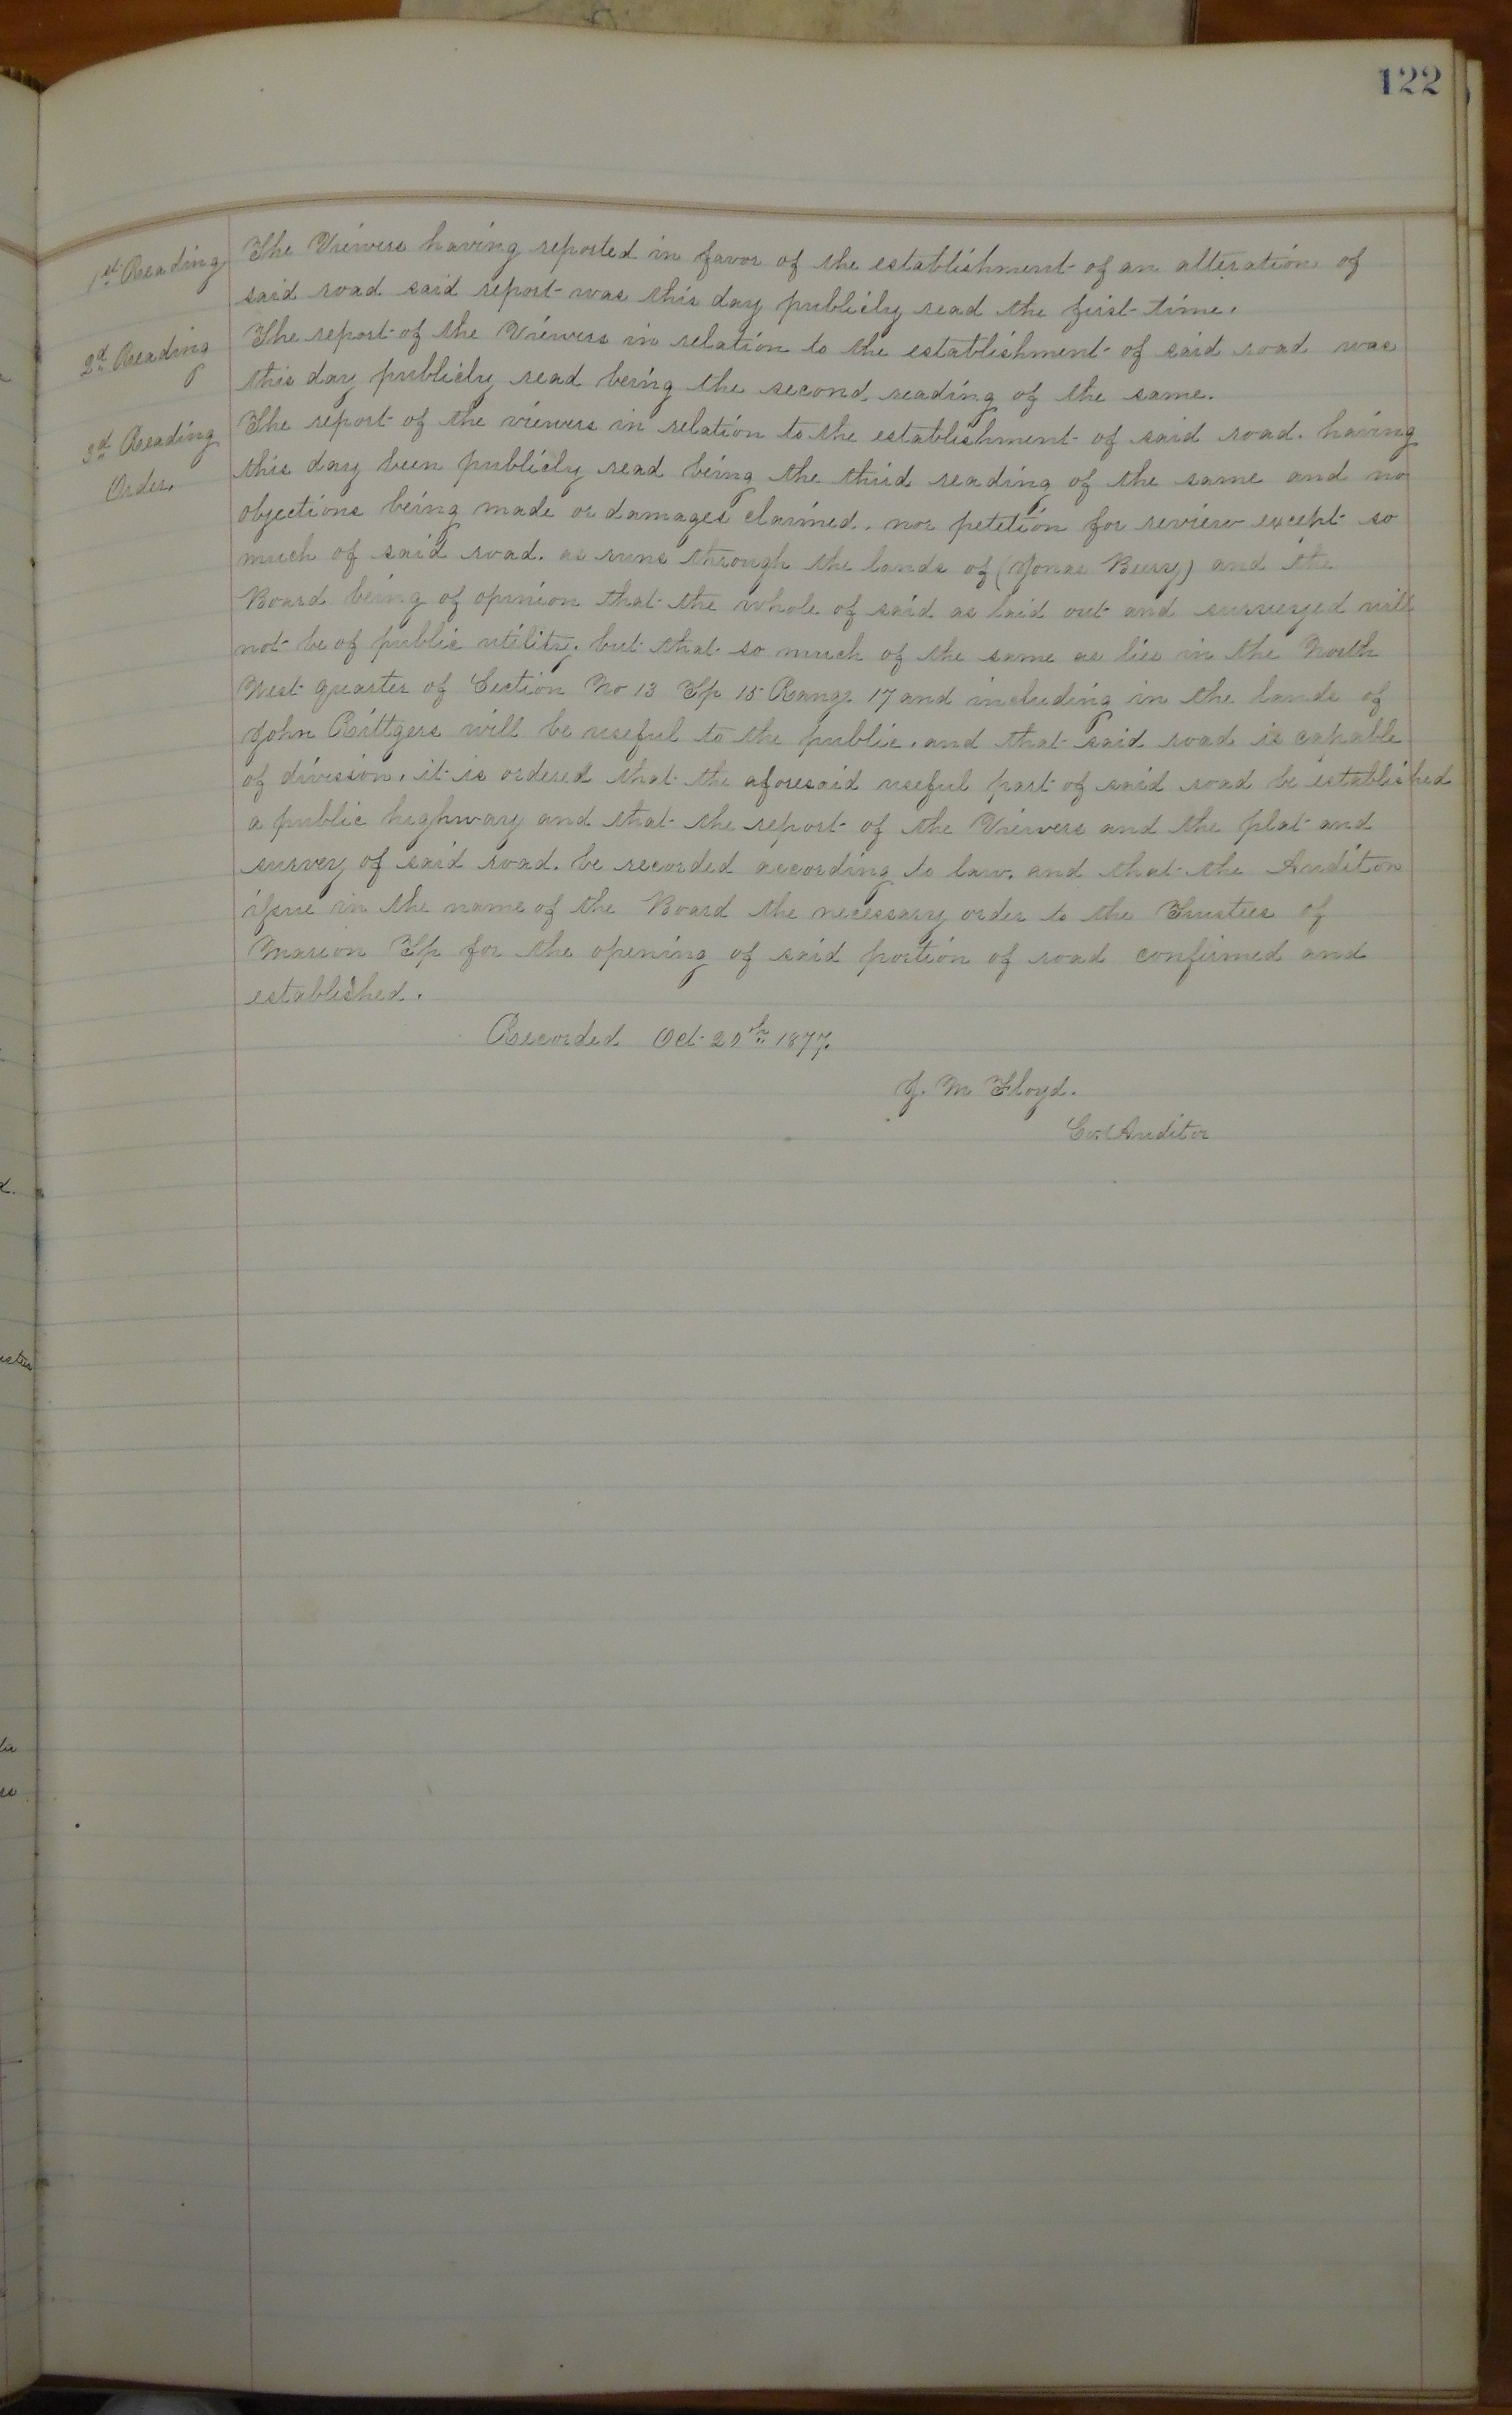 122
1st Reading
The Viewers having reported in favor of the establishment of an alteration of
said road said report was this day publicly read the first time.
2d Reading
The report of the Viewers in relation to the establishment of said road was
this day publicly read being the second reading of the same.
3d Reading
The report of the viewers in relation to the establishment of said road. having
Order.
this day been publicly read being the third reading of the same and no
objections being made or damages claimed. nor petetion for review except so
much of said road. as runs through the lands of (Jonas Beery) and the
Board being of opinion that the whole of said as laid out and surveyed will
not be of public utility. but that so much of the same as lies in the North
West quarter of Section No 13 Tp 15 Range 17 and including in the lands of
John Rittgers will be useful to the public. and that said road is capable
of division. it is ordered that the aforesaid useful part of said road be established
a public highway and that the report of the Viewers and the plat and
survey of said road. be recorded according to law. and that the Auditor
issue in the name of the Board the necessary order to the Trustees of
Marion Tp for the opening of said portion of road confirmed and
established.
Recorded Oct 20th 1877.
J. M Floyd.
Co. Auditor